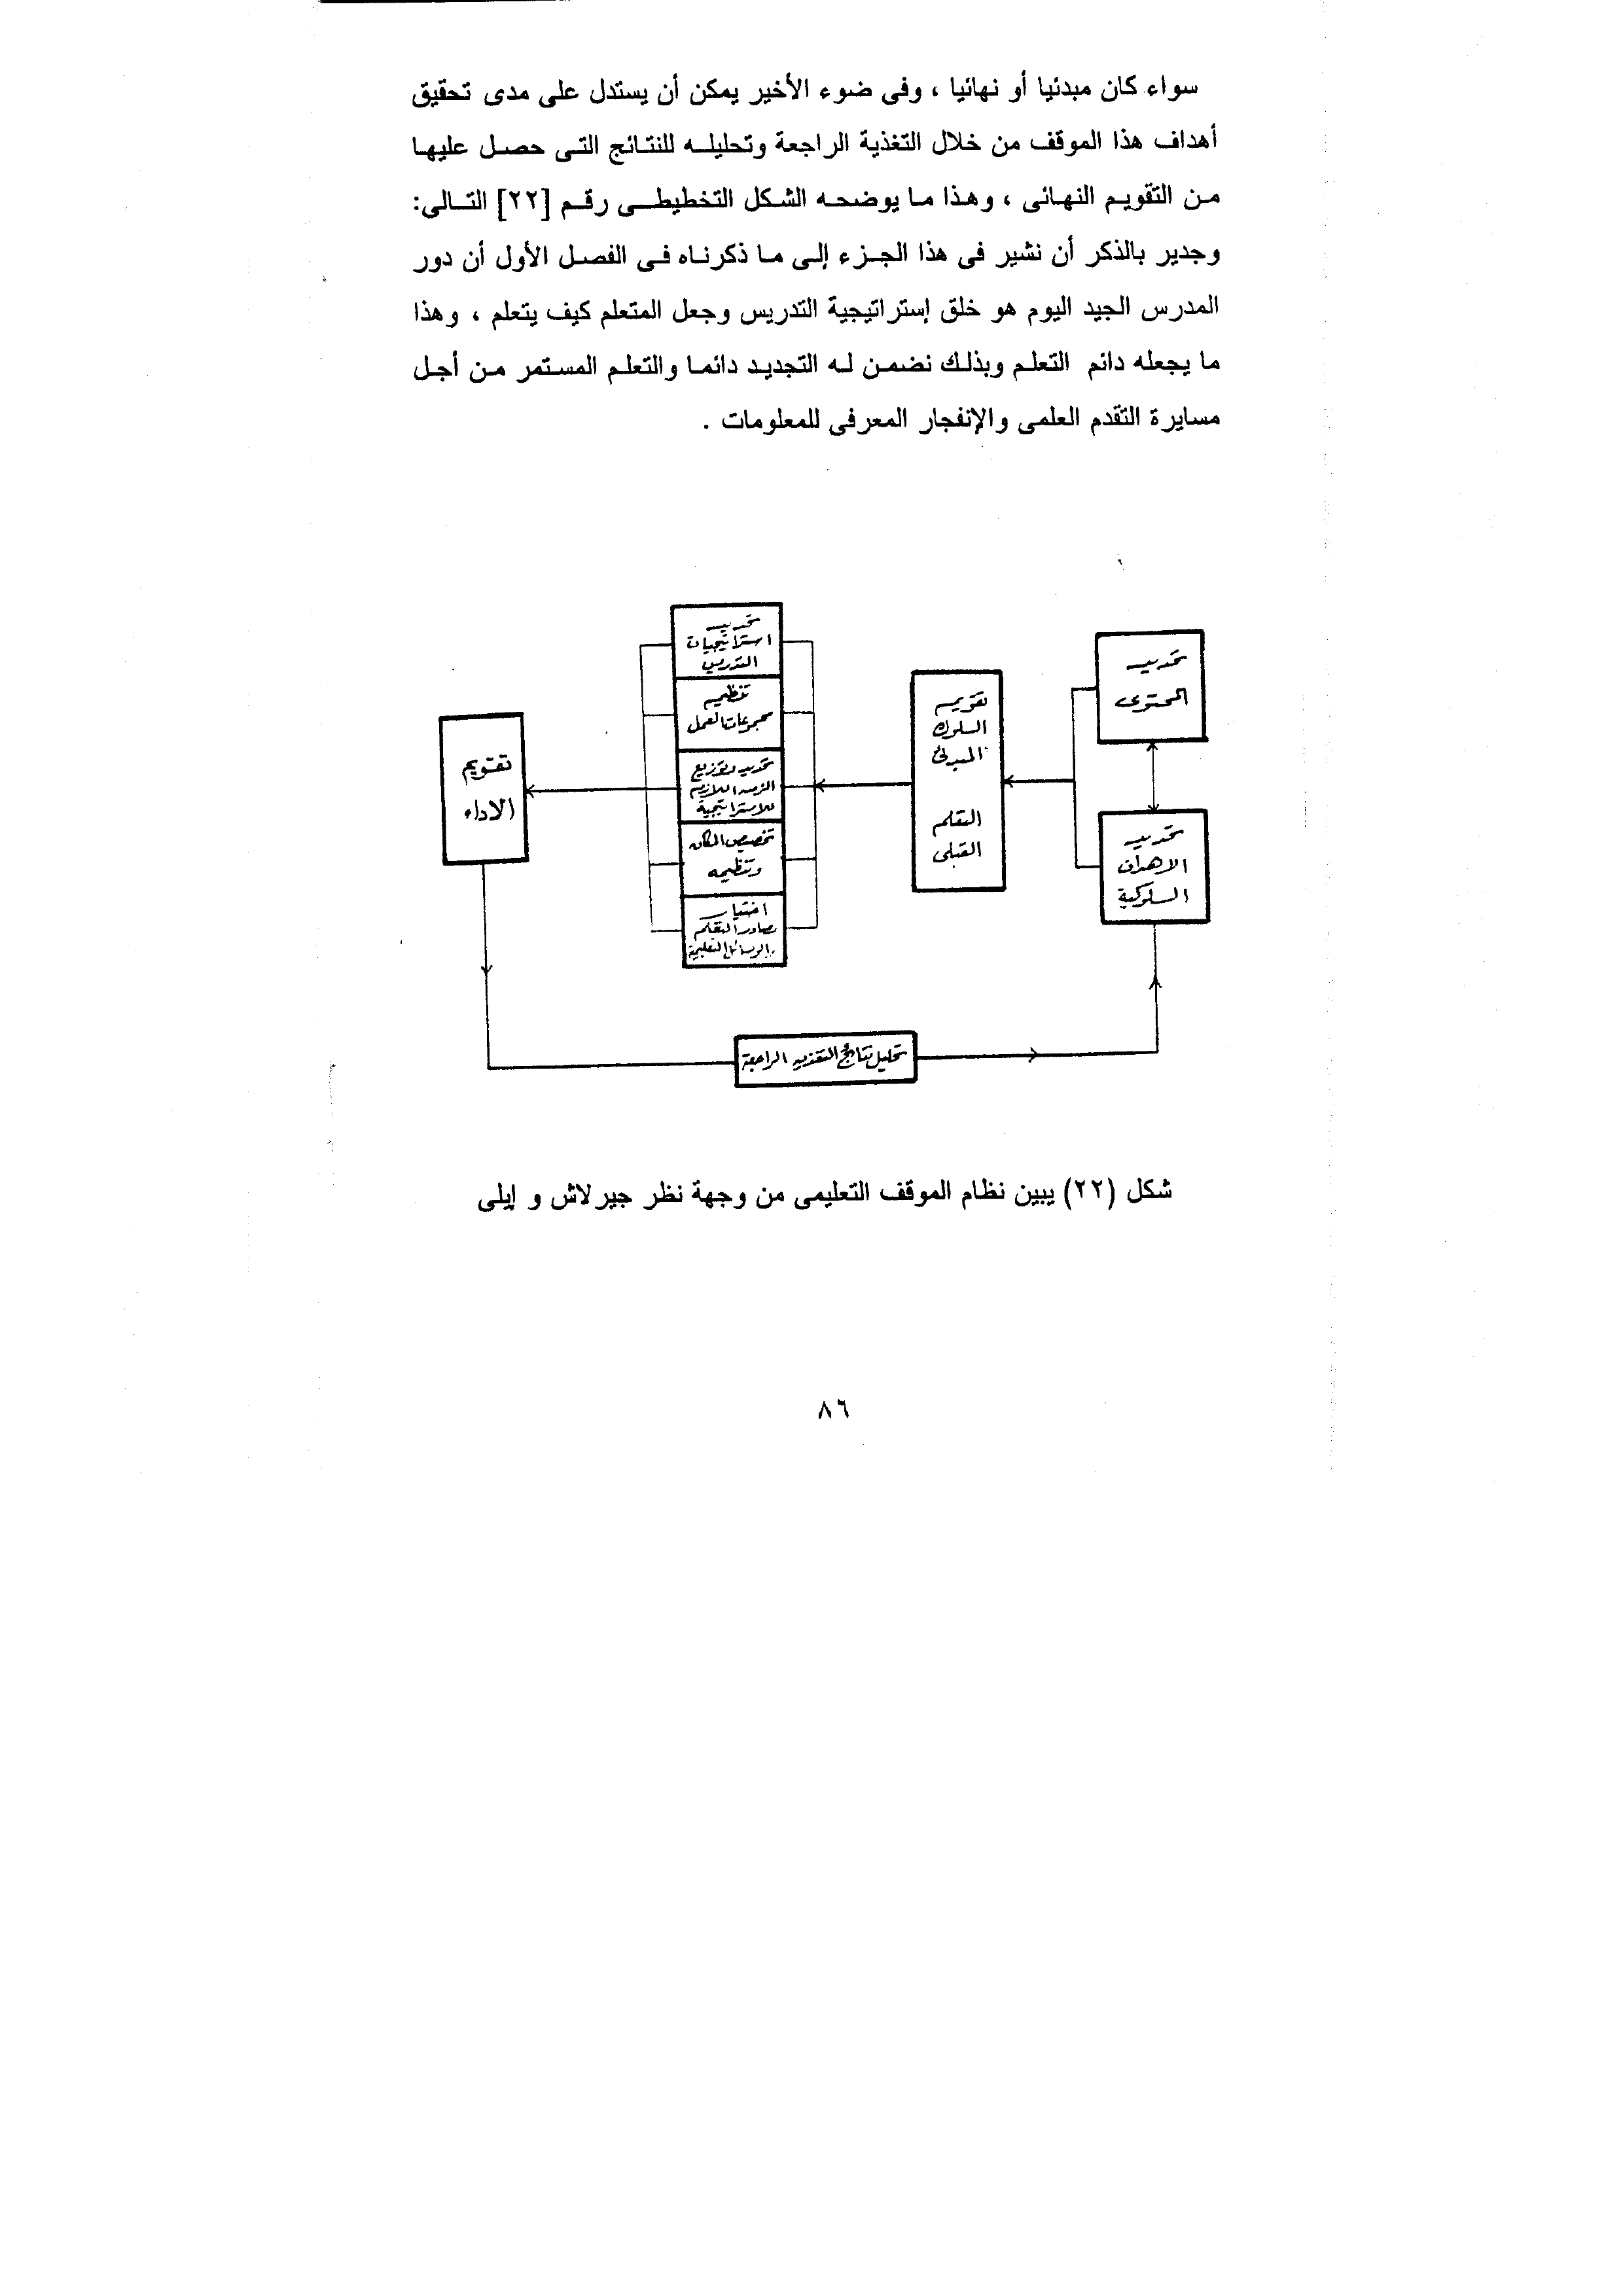 سواء كان مبدئيا أو نهائيا ، وفى ضوء الأخير يمكن أن يستدل على مدى تحقيق
أهداف هذا الموقف من خلال التغذية الراجعة وتحليله للنتائج التى حصل عليها
من التقويم النهائى ، وهذا ما يوضحه الشكل التخطيطى رقم [٢٢] التالى:
وجدير بالذكر أن نشير فى هذا الجزء إلى ما ذكرناه فى الفصل الأول أن دور
المدرس الجيد اليوم هو خلق إستراتيجية التدريس وجعل المتعلم كيف يتعلم ، وهذا
ما يجعله دائم التعلم وبذلك نضمن له التجديد دائما والتعلم المستمر من أجل
مسايرة التقدم العلمى والإنفجار المعرفى للمعلومات .
تحديد
المحتوى
تحديد
الاهداف
السلوكية
تقويم
السلوك
المبدئى
التعلم
القبلى
تحديد
استراتيجيات
التدريس
تنظيم
مجموعات العمل
تحديد وتوزيع
الزمن اللازم
للاستراتيجية
تخصيص المكان
وتنظيمه
اختيار
مصادر التعلم
والوسائل التعليمية
تقويم
الاداء
تحليل نتائج التغذيه الراجعة
شكل (٢٢) يبين نظام الموقف التعليمى من وجهة نظر جيرلاش و إيلى
٨٦